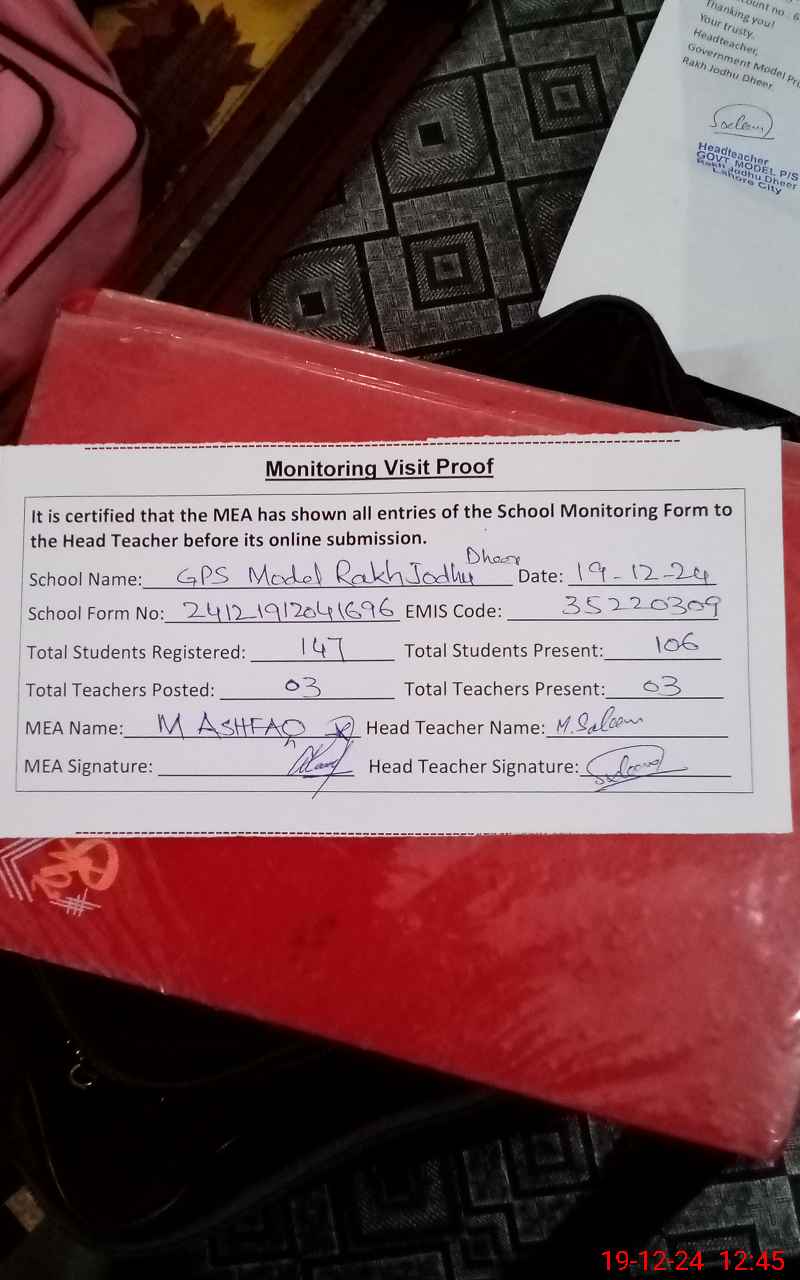 count no. 6
Thanking you!
Your trusty,
Headteacher,
Government Model Pri
Rakh Jodhu Dheer.
Saleem
Headteacher
GOVT. MODEL P/S
Rakh Jodhu Dheer
Lahore City
Monitoring Visit Proof
It is certified that the MEA has shown all entries of the School Monitoring Form to
the Head Teacher before its online submission.
School Name: GPS Model Rakh Jodhu Dheer Date: 19-12-24
School Form No: 24121912041696 EMIS Code: 35220309
Total Students Registered: 147 Total Students Present: 106
Total Teachers Posted: 03 Total Teachers Present: 03
MEA Name: M ASHFAQ Head Teacher Name: M.Saleem
MEA Signature: Head Teacher Signature: Saleem
19-12-24 12:45